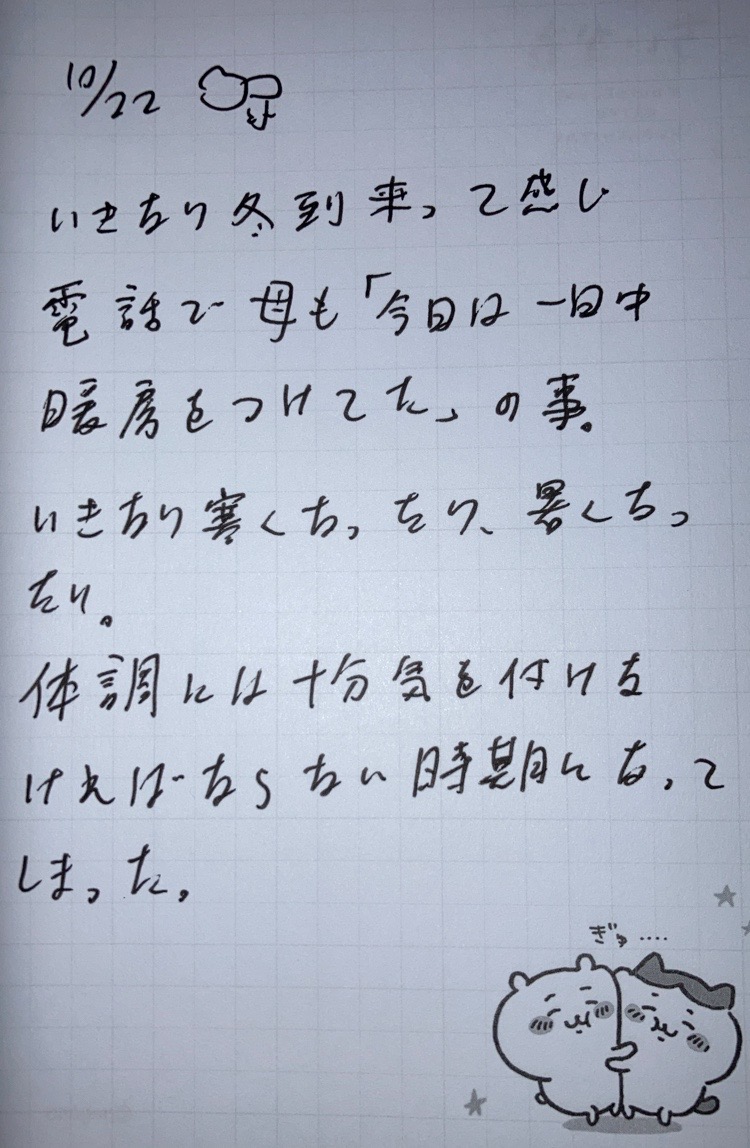 10/22
いきなり冬到来って感じ
電話で母も「今日は一日中
暖房をつけてた」の事。
いきなり寒くなったり、暑くなっ
たり。
体調には十分気を付けな
ければならない時期になって
しまった。
ぎゅ‥‥